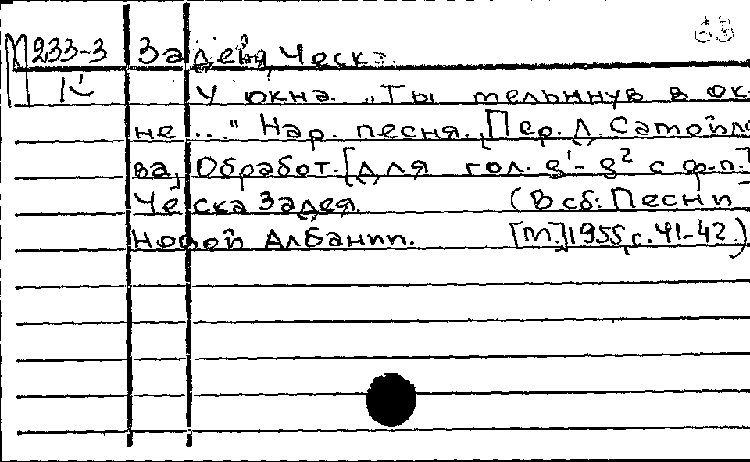 63
М 233-3 Задея, Ческа.
К
У окна. „Ты мелькнув в ок-
не..." Нар. песня. [Пер. Д. Самойло-
ва, Обработ. [для гол. g¹-g² с ф-п.]
Ческа Задея. (В сб: Песни
Новой Албании. [М.] 1955, с. 41-42.)